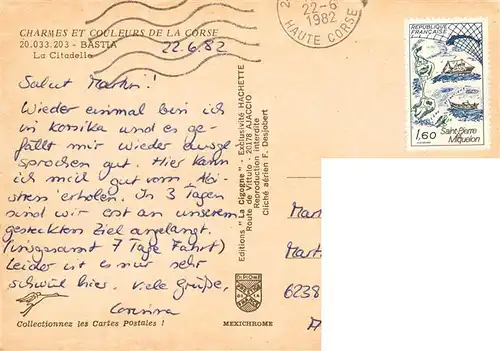 CHARMES ET COULEURS DE LA CORSE
20.033.203 - BASTIA
La Citadelle
22.6.82
22-6
1982
HAUTE CORSE
RÉPUBLIQUE FRANÇAISE
1,60
Saint-Pierre et Miquelon
Salut Martin!
Wieder einmal bin ich
in Korsika und es ge-
fällt mir wieder ausge-
sprochen gut. Hier kann
ich mich gut vom "Abi-
stress" erholen. In 3 Tagen
sind wir erst an unserem
gesteckten Ziel angelangt.
(insgesamt 7 Tage Fahrt)
Leider ist es nur sehr
schwül hier. Viele Grüße,
Corinna
Editions "La Cigogne" - Exclusivité HACHETTE
Route de Vittulo - 20178 AJACCIO
Reproduction interdite
Cliché aérien F. Desjobert
Mart
Mart
6238
Collectionnez les Cartes Postales !
MEXICHROME